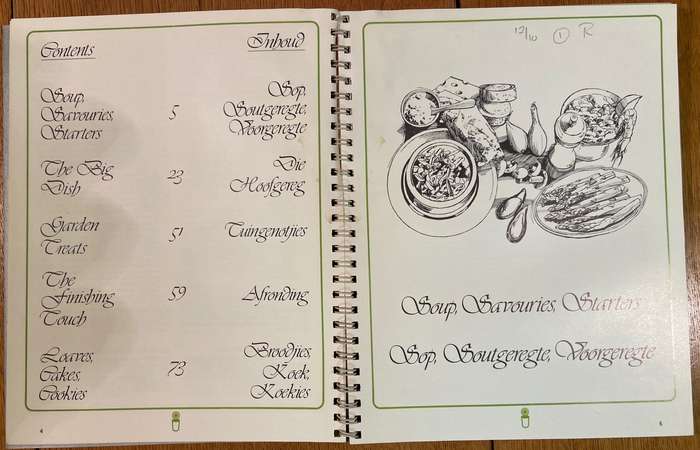 Contents
Inhoud
Soup,
Savouries,
Starters
5
Sop,
Soutgeregte,
Voorgeregte
The Big
Dish
23
Die
Hoofgereg
Garden
Treats
51
Tuingenotjies
The
Finishing
Touch
59
Afronding
Loaves,
Cakes,
Cookies
73
Broodjies,
Koek,
Koekies
4
12/10 1 R
Soup, Savouries, Starters
Sop, Soutgeregte, Voorgeregte